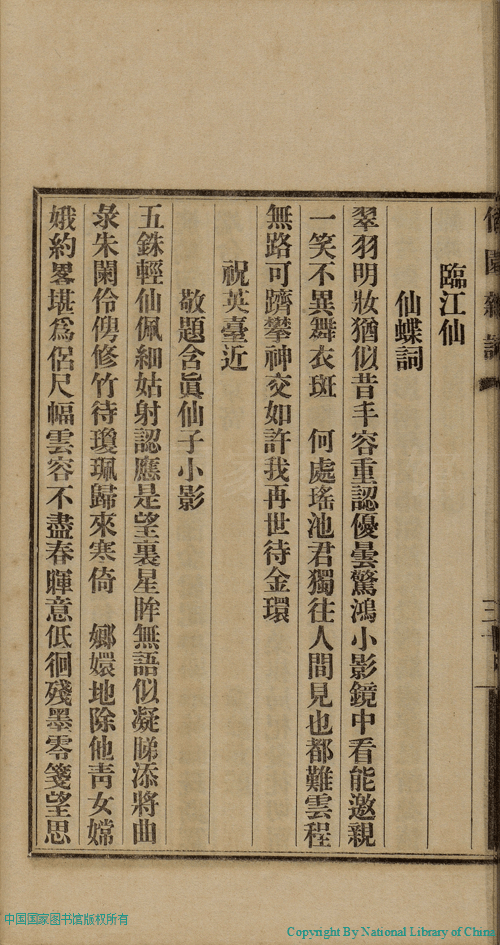 臨江仙
仙蝶詞
翠羽明妝猶似昔丰容重認優曇驚鴻小影鏡中看能邀親
一笑不異舞衣斑　何處瑤池君獨往人間見也都難雲程
無路可躋攀神交如許我再世待金環
祝英臺近
敬題含眞仙子小影
五銖輕仙佩細姑射認應是望裏星眸無語似凝睇添將曲
彔朱闌伶俜修竹待瓊珮歸來寒倚　嫏嬛地除他靑女嫦
娥約畧堪爲侶尺幅雲容不盡春暉意低徊殘墨零箋望思
中国国家图书馆版权所有
Copyright By National Library of China